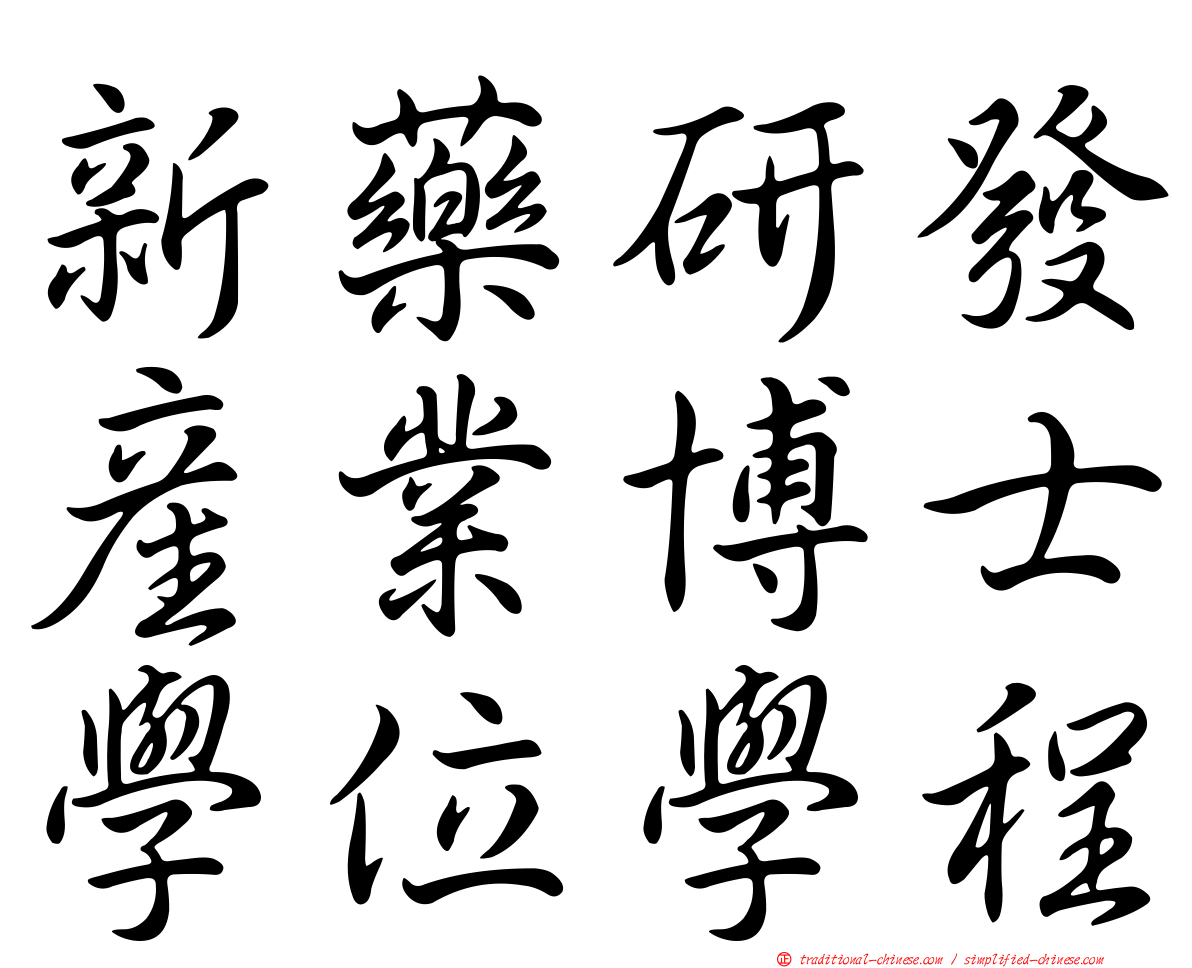 新藥研發
產業博士
學位學程
正 traditional-chinese.com / simplified-chinese.com